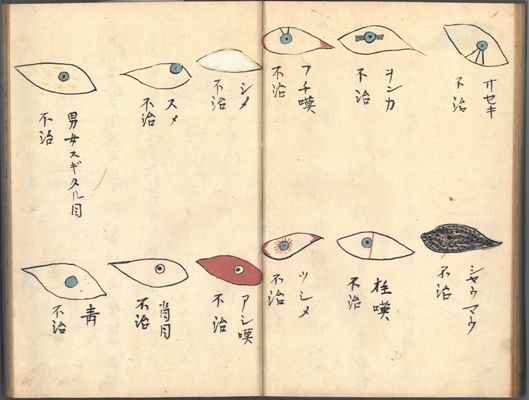 オセキ
不治
ヲンカ
不治
フチ嘆
不治
シャウマウ
不治
柱嘆
不治
ツシメ
不治
シメ
不治
スメ
不治
男女スギタル目
不治
アシ嘆
不治
肖目
不治
青
不治